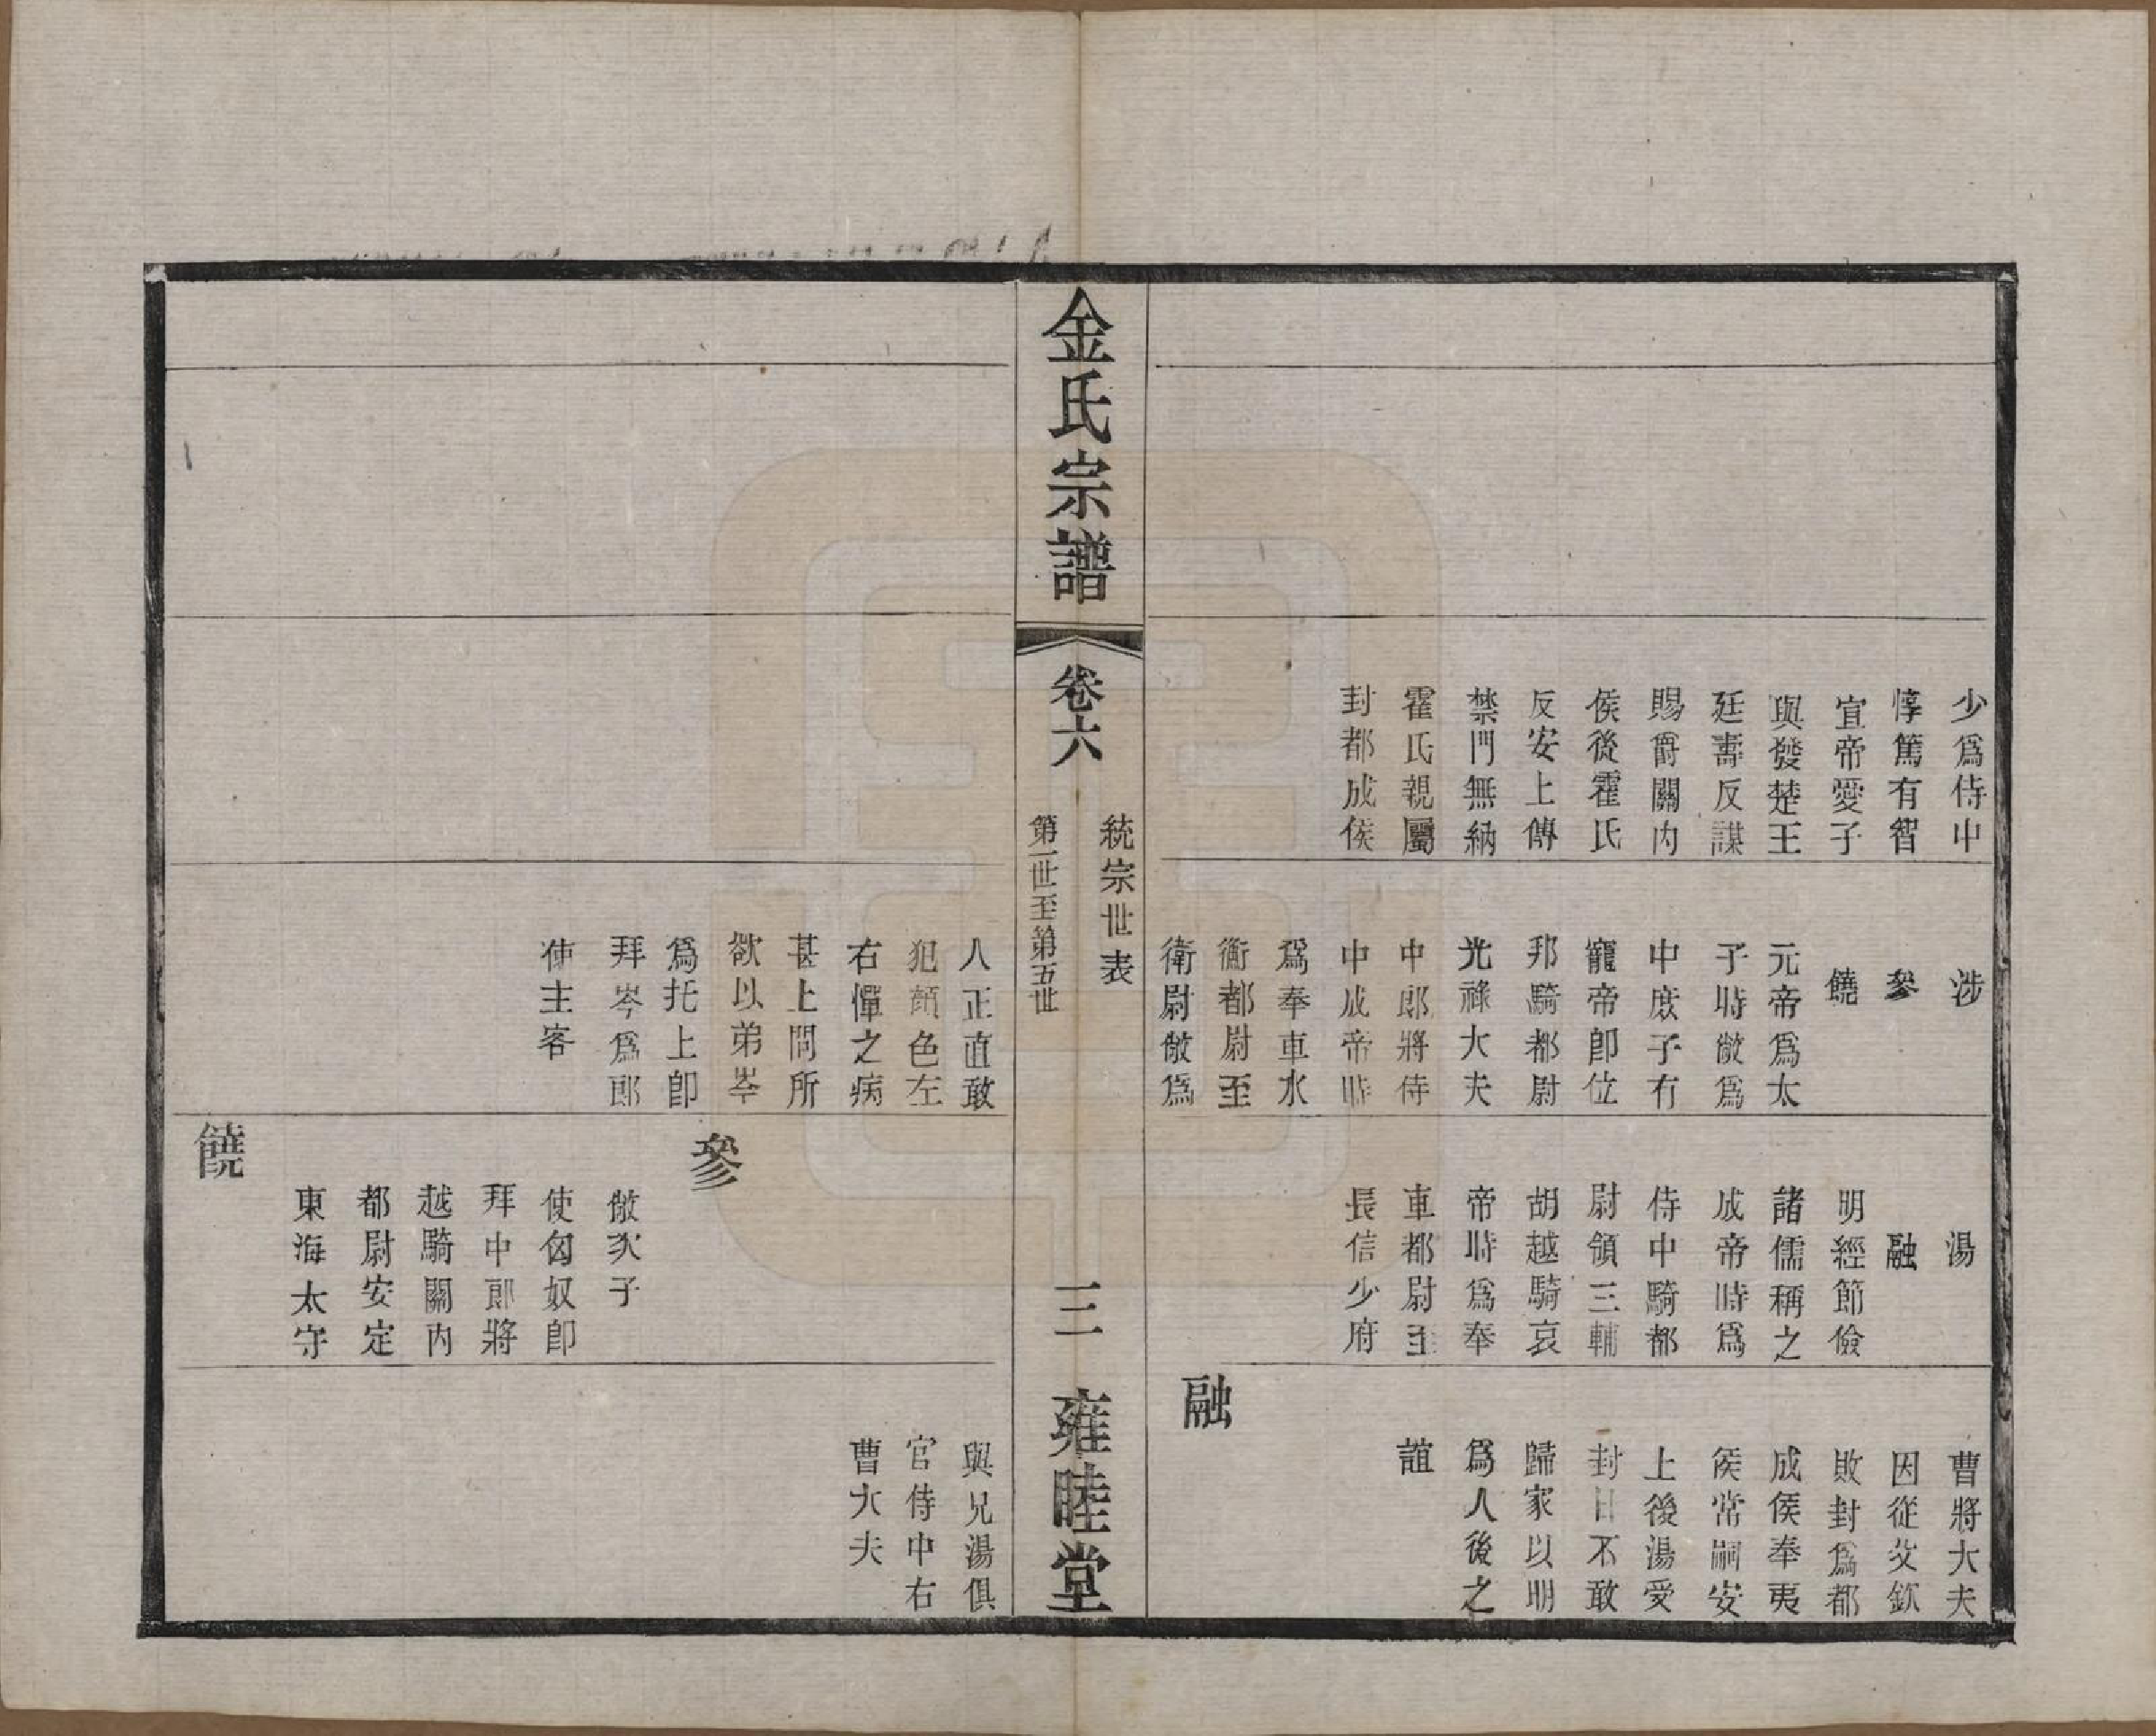 少爲侍中
惇篤有智
宣帝愛子
與發楚王
廷壽反謀
賜爵關內
侯後霍氏
反安上傳
禁門無納
霍氏親屬
封都成侯
涉
參
饒
元帝爲太
子時敞爲
中庶子有
寵帝卽位
邦騎都尉
光祿大夫
中郎將侍
中成帝時
爲奉車水
衡都尉至
衛尉敞爲
湯
融
明經節儉
諸儒稱之
成帝時爲
侍中騎都
尉領三輔
胡越騎哀
帝時爲奉
車都尉至
長信少府
曹將大夫
因從父欽
敗封爲都
成侯奉夷
侯常嗣安
上後湯受
封日不敢
歸家以明
爲人後之
誼
融
金氏宗譜
卷六
統宗世表
第一世至第五世
三
雍睦堂
人正直敢
犯顏色左
右憚之病
甚上問所
欲以弟岑
爲托上卽
拜岑爲郎
使主客
參
敞次子
使匈奴卽
拜中郎將
越騎關內
都尉安定
東海太守
饒
與兄湯俱
官侍中右
曹大夫